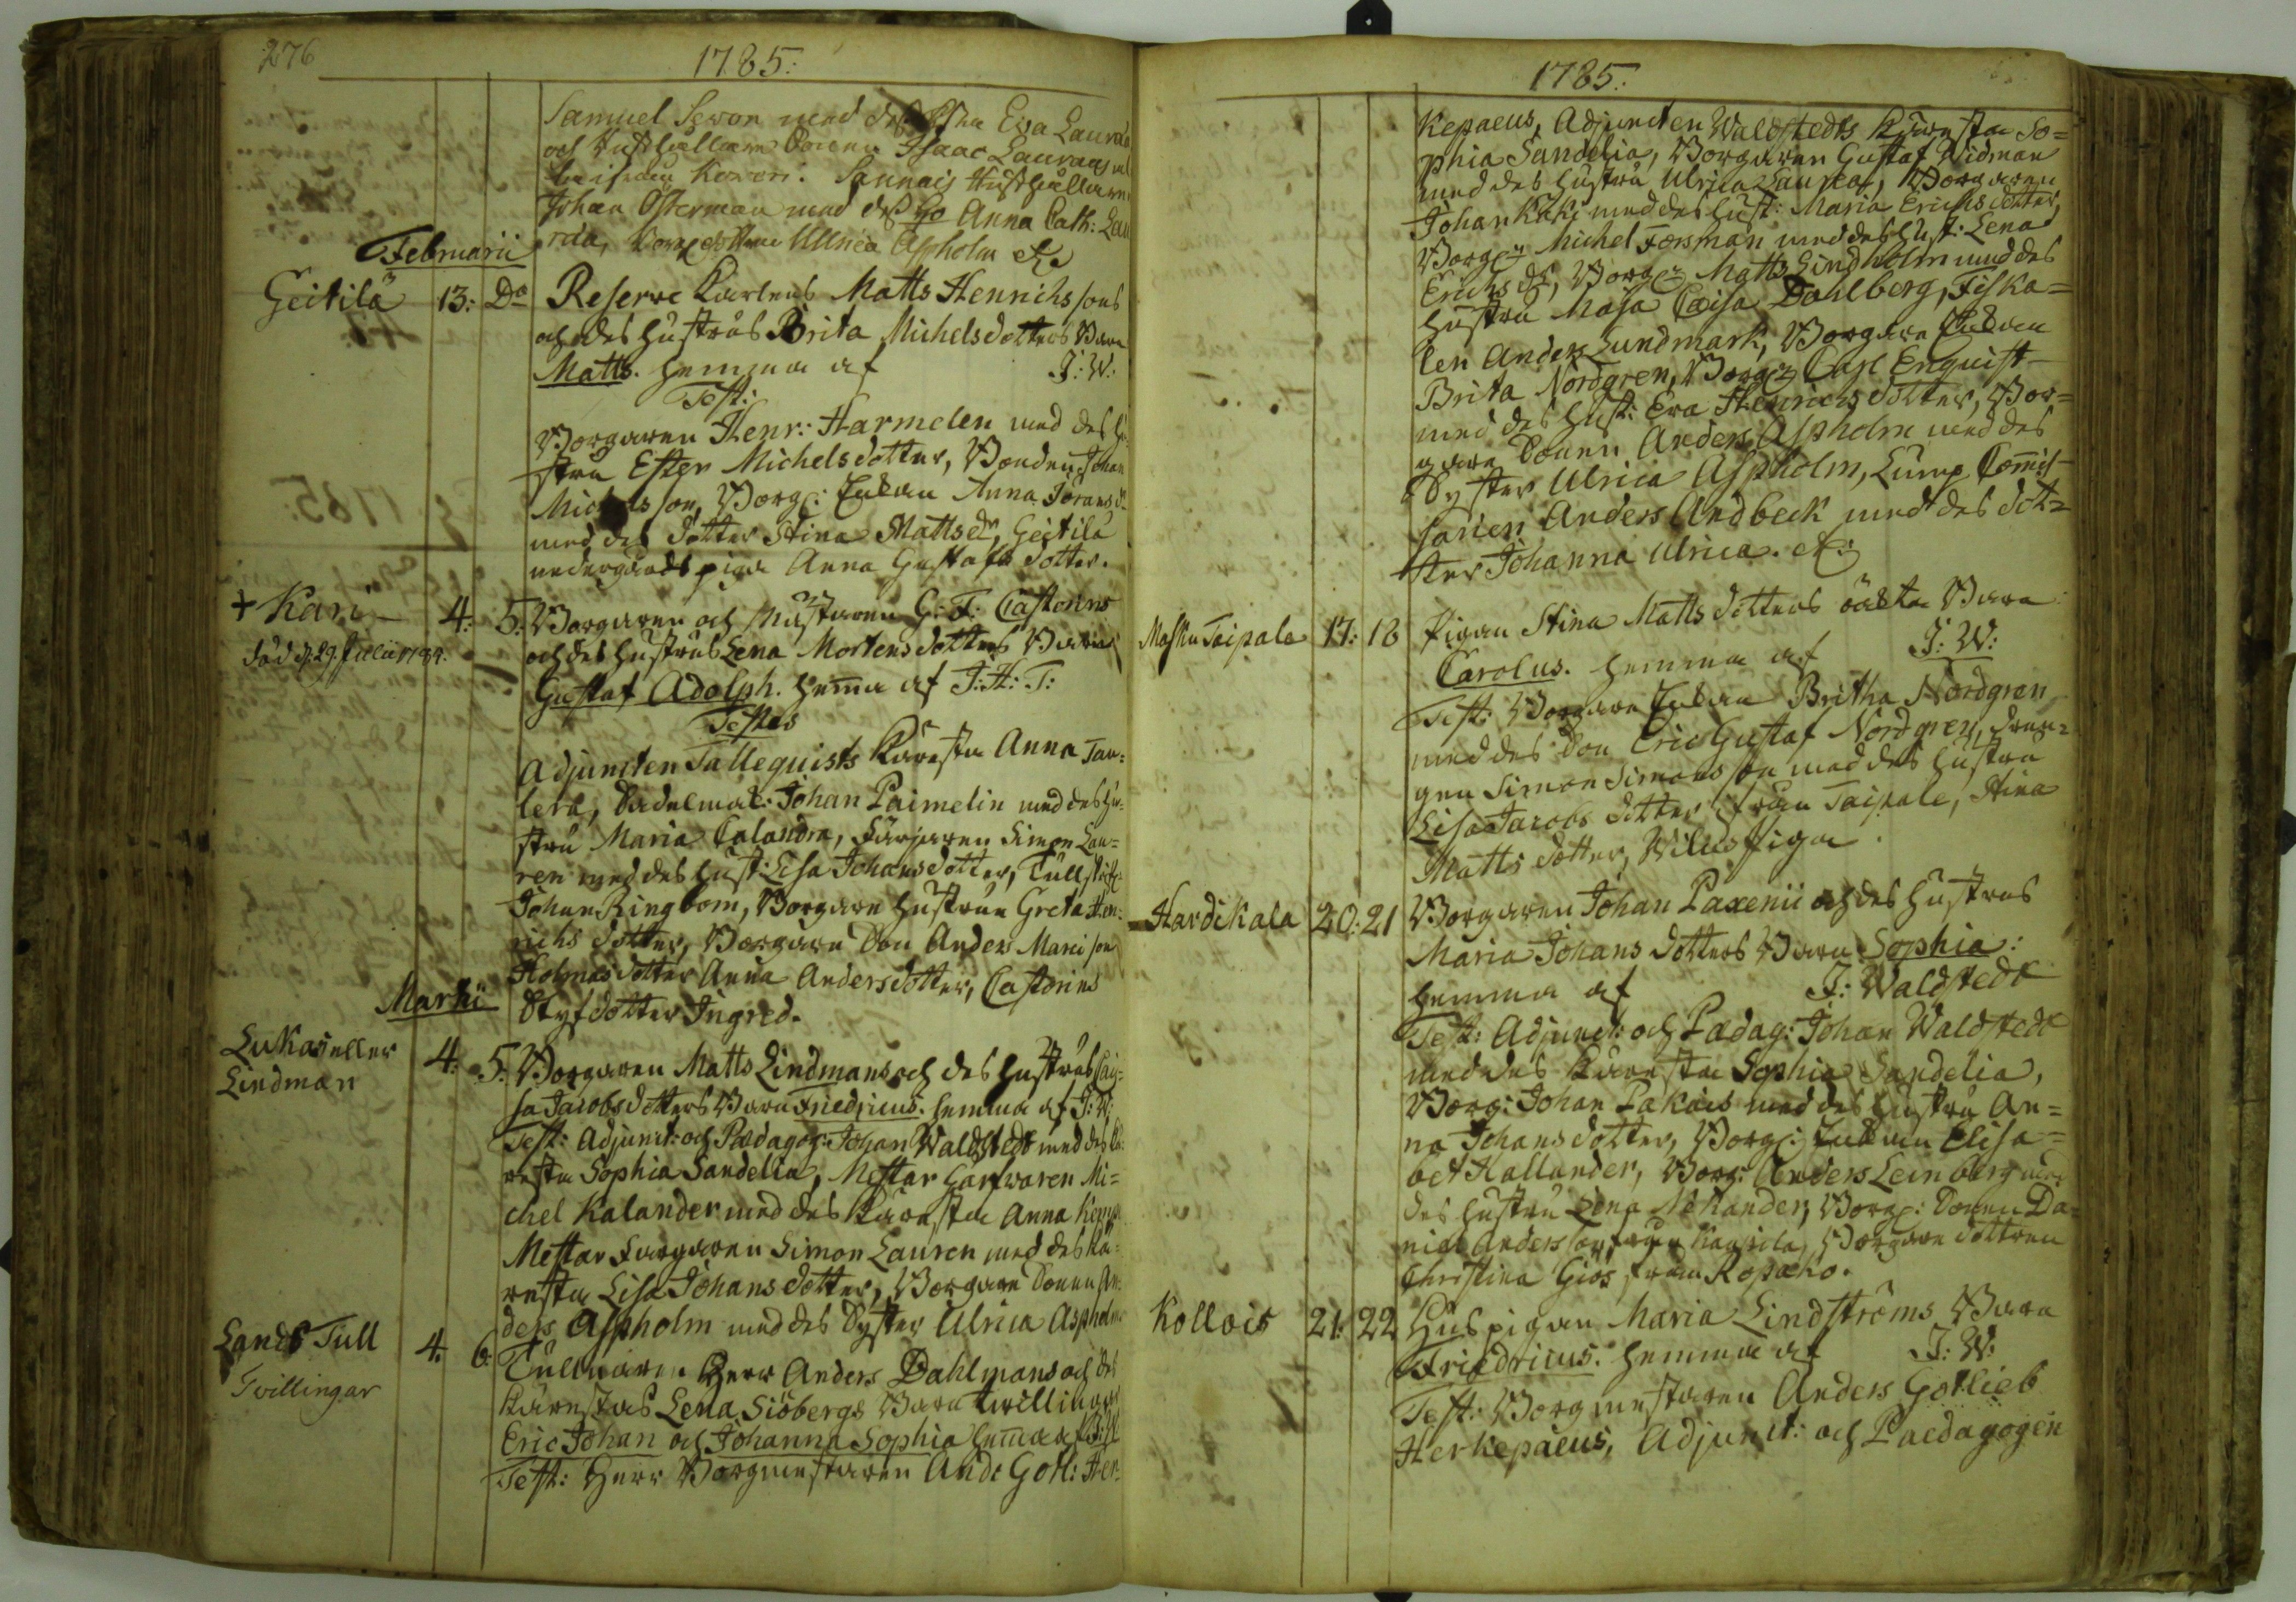 276
1785:
Samuel Sevon med Eva Laurae
och Isaac Lauraeus
från Korvoi. Sannais Husthållaren
Johan Österman med dess Anna Cath: Lau
rea, Ullrica Aspholm &c
Februarii
Geitilä 13: Do Reserve Karlens Matts Henrichssons
och des hustrus Brita Michelsdotters Barn
Matts. hemma af J: W:
Test:
Borgaren Henr: Harmelen med des hu
stru Ester Michelsdotter, Bonden Johan
Michelsson, Borg: Enkan Anna Jörans d
med des dotter Stina Mattsdr, Geitilä
nedergårds pigan Anna Gustafs dotter.
+ Kari 4: 5: Borgaren och G: F: Castorins
död d: 29. Julii 1789.
och des hustrus Lena Mortens dotters Barn
Gustaf Adolph. hemma af J: H: T:
Testes
Adjuncten Tallequists Käresta Anna Tau=
lera, Sadelmak: Johan Paimelin med des hu=
stru Maria Calandra, Färjaren Simon Lau=
ren med des hust: Lisa Johansdotter, Tullskrif:
Johan Ringbom, Borgare hustrun Greta Hen=
richs dotter, Borgare Son Anders Marcisson
Holmas dotter Anna Andersdotter, Castorins
Styfdotter Ingred.
Martii
Lukas eller
Lindman
4. 5. Borgaren Matts Lindmans och des hustrus Cai=
sa Jacobs dotters Barn Friedricus. hemma af J: W:
Test: Adjunct: och Pædagog: Johan Waldstedt med des Kä=
resta Sophia Sandelia, Mestar Garfvaren Mi=
chel Kalander med des Käresta Anna
Mestar Färgaren Simon Lauren med des Kä=
resta Lisa Johansdotter, Borgare Sonen An=
ders Aspholm med des Syster Ulrica Aspholm
Lands Tull 4. 6.
Tvillingar
Tullnären Herr Anders Dahlmans och des
Kärestas Lena Siöbergs Barn twillingar
Eric Johan och Johanna Sophia hemma af J: W
Test: Herr Borgmestaren And: Gotl: Her=
1785:
kepaeus, Adjuncten Waldstedts Käresta So=
phia Sandelia, Borgaren Gustaf Widman
med des hustru Ulrica Laurea, Borgaren
Johan Kaki med des hust: Maria Erichs dotter,
Borg: Michel Forsman med des hust: Lena
Erichs dr, Borg: Matts Lindholm med des
hustru Maja Caisa Dahlberg, Fiska=
len Anders Lundmark, Borgare Enkan
Brita Nordgren, Borg: Carl Enquist
med des hust: Eva Henrichs dotter, Bor=
gare Sonen Anders Aspholm med des
Syster Ulrica Aspholm, Lump Commis=
sarien Anders Andbeck med des dot=
ter Johanna Ulrica. &c:
Masku Taipale 17: 18 Pigan Stina Matts dotters oäkta Barn
Carolus. hemma af J: W:
Test: Borgare Enkan Britha Nordgren
med des Son Eric Gustaf Nordgren, dren=
gen Simon Simonsson med des hustru
Lisa Jacobs dotter från Taipale, Stina
Matts dotter, piga
Hardikala 20: 21 Borgaren Johan Paxenii och des hustrus
Maria Johans dotters Barn Sophia:
hemma af J: Waldstedt
Test: Adjunct: och Pædag: Johan Waldstedt
med des Käresta Sophia Sandelia,
Borg: Johan Pakais med des hustru An=
na Johans dotter, Borg: Enkan Elisa=
bet Hallander, Borg: Anders Leinberg med
des hustru Lena Mekander, Borg: Sonen Da=
niel Andersson från Kaupila, Borgare dottren
Christina Giös från Ropako.
Kollois 21: 22 Huspigan Maria Lindströms Barn
Friedricus. hemma af J: W:
Test: Borgmestaren Anders Gotlieb
Herkepaeus, Adjunct: och Paedagogen